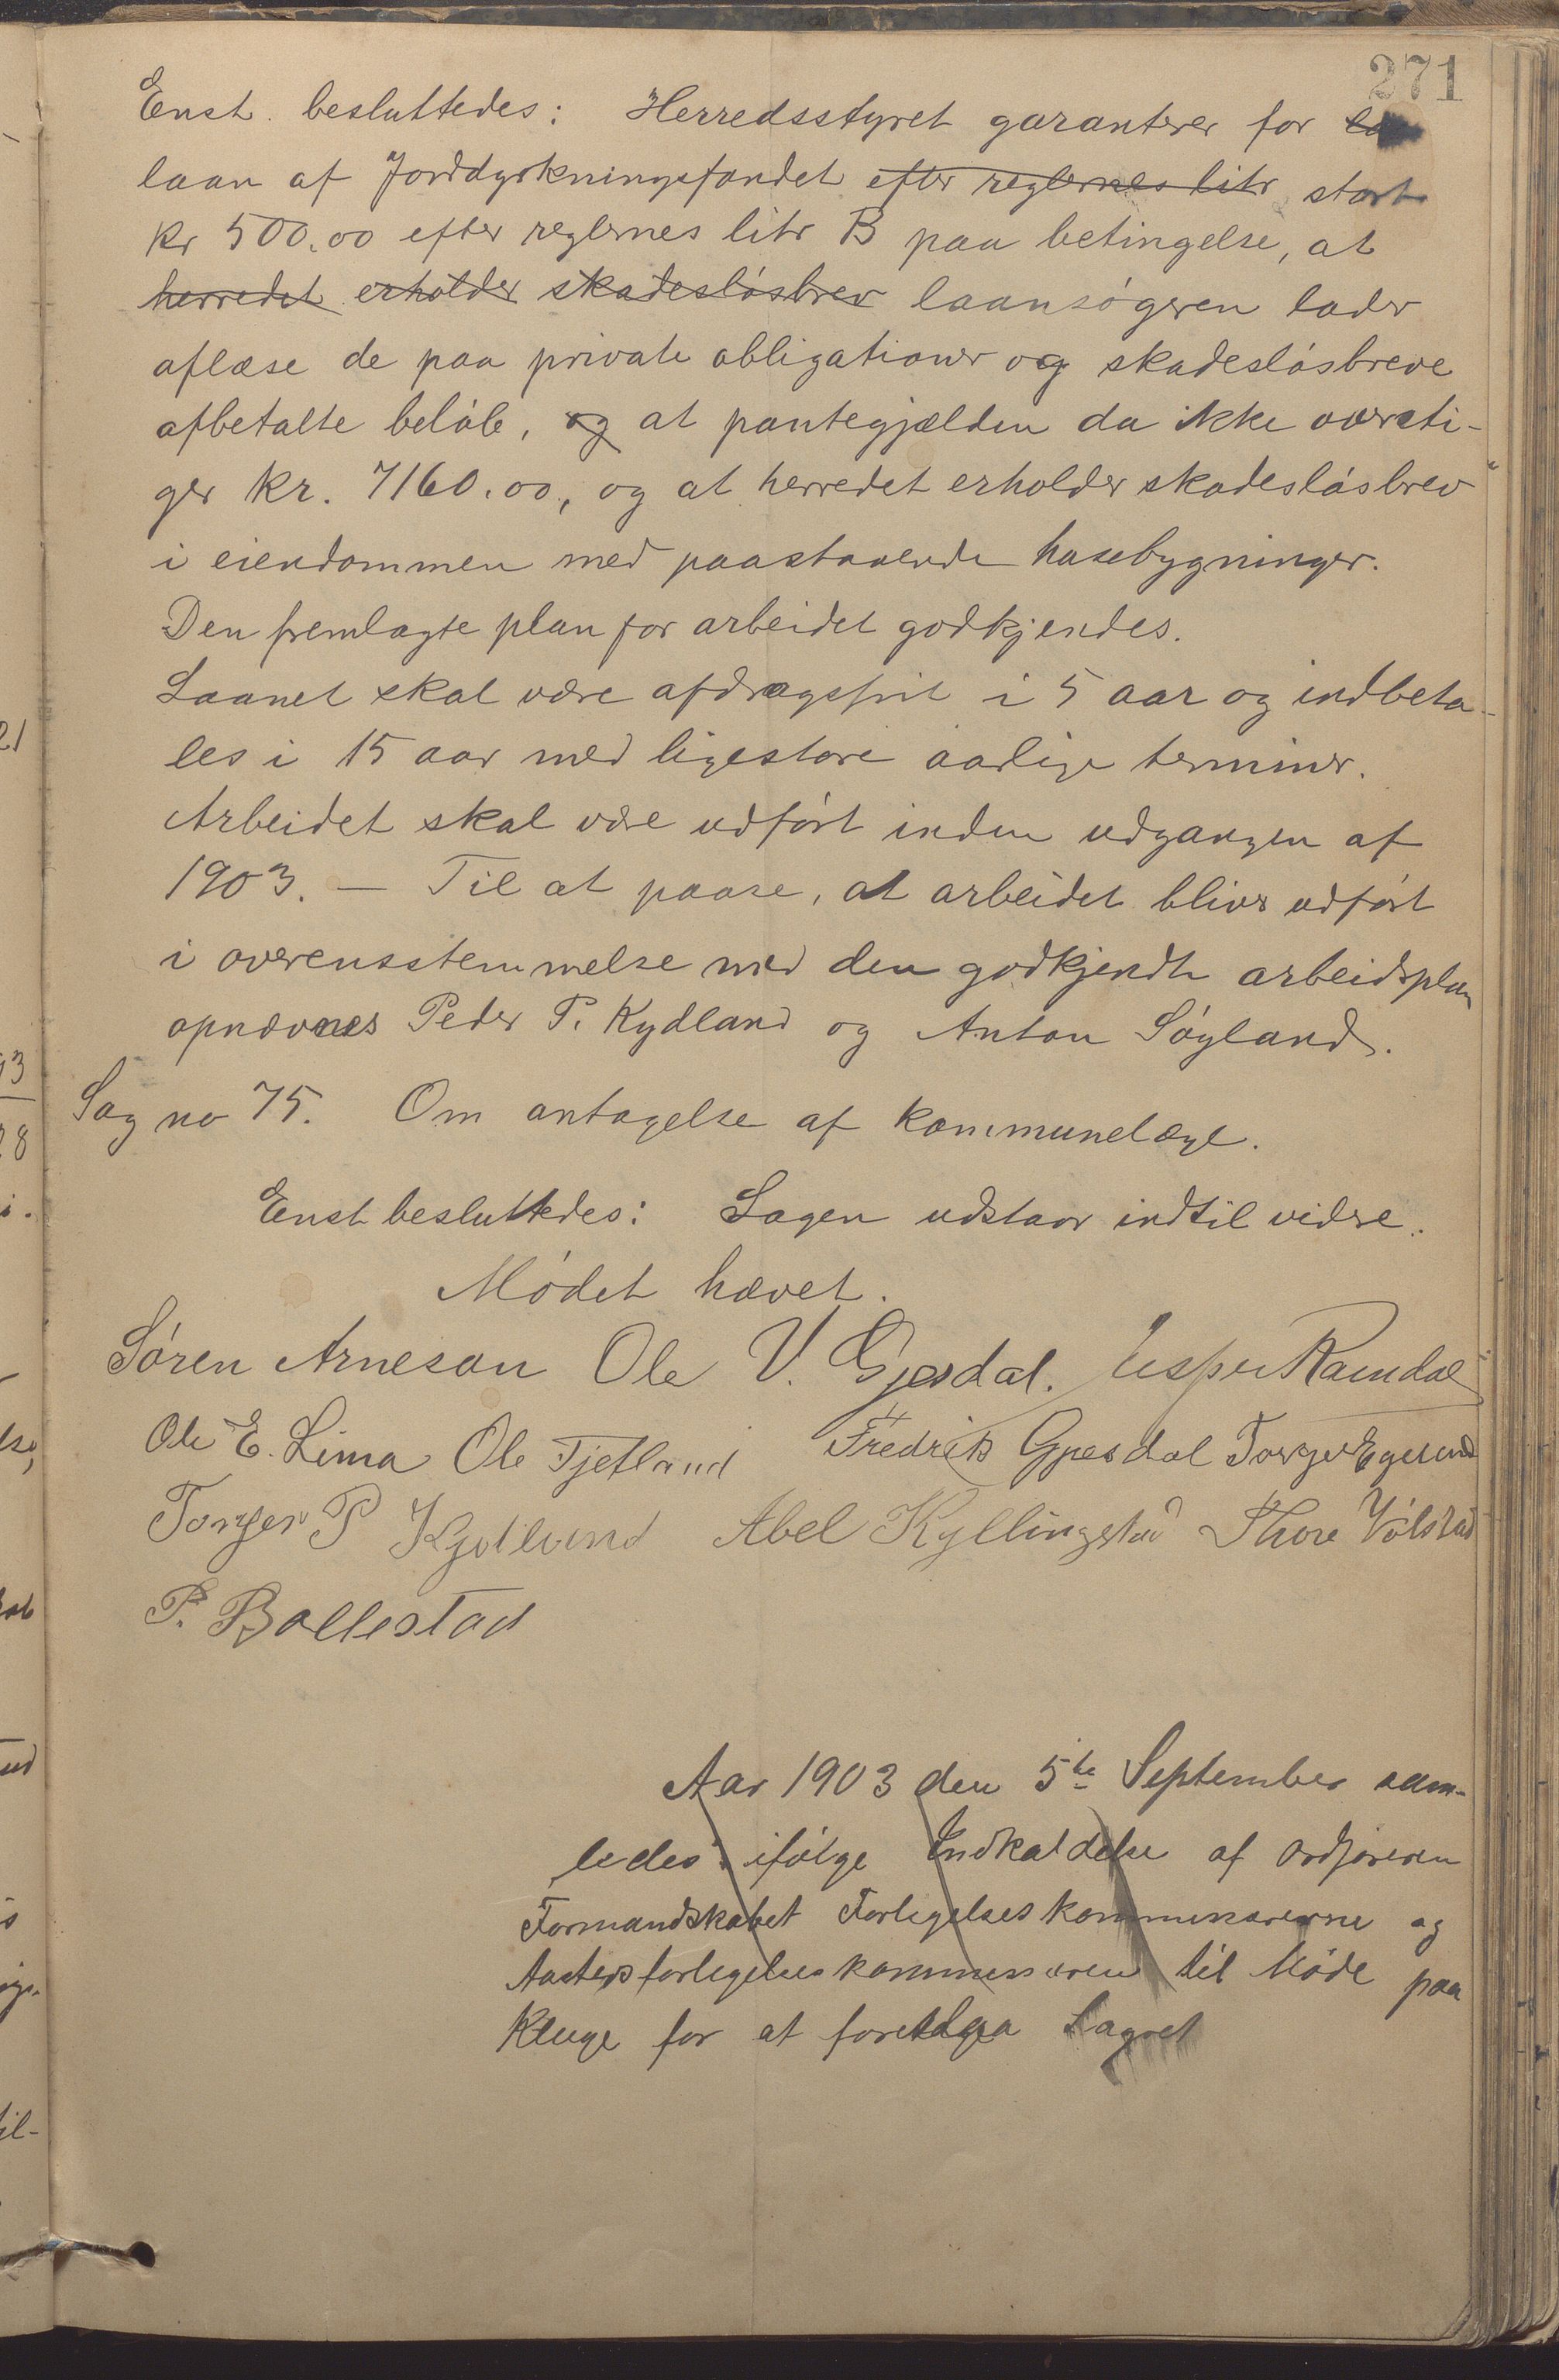 271
Enst. besluttedes: Herredsstyret garanterer for
laan af Jorddyrkningsfondet efter reglernes litr stort
kr 500.00 efter reglernes litr B paa betingelse, at
herredet erholder skadesløsbrev laansøgeren lader
aflæse de paa private obligationer og skadesløsbreve
afbetalte beløb, og at pantegjælden da ikke oversti-
ger kr. 7160.00, og at herredet erholder skadesløsbrev
i eiendommen med paastaaende husebygninger.
Den fremlagte plan for arbeidet godkjendes.
Laanet skal være afdragsfrit i 5 aar og indbeta-
les i 15 aar med ligestore aarlige terminer.
Arbeidet skal være udført inden udgangen af
1903. — Til at paase, at arbeidet bliver udført
i overensstemmelse med den godkjendte arbeidsplan
opnævnes Peder P. Kydland og Anton Søyland.
Sag no 75. Om antagelse af kommunelæge.
Enst besluttedes: Sagen udstaar indtil videre.
Mødet hævet.
Søren Arnesen Ole V. Gjesdal. Jesper Ramdal
Ole E. Lima Ole Tjetland Fredrik Gjesdal Torger Egeland
Torger P Kydland Abel Kyllingstad Thore Vølstad
P. Bollestad
Aar 1903 den 5te September sam-
ledes ifølge Indkaldelse af Ordføreren
Formandskabet Forligelseskommisærerne og
forligelseskommissæren til Møde paa
Kluge for at foretaga Lagret